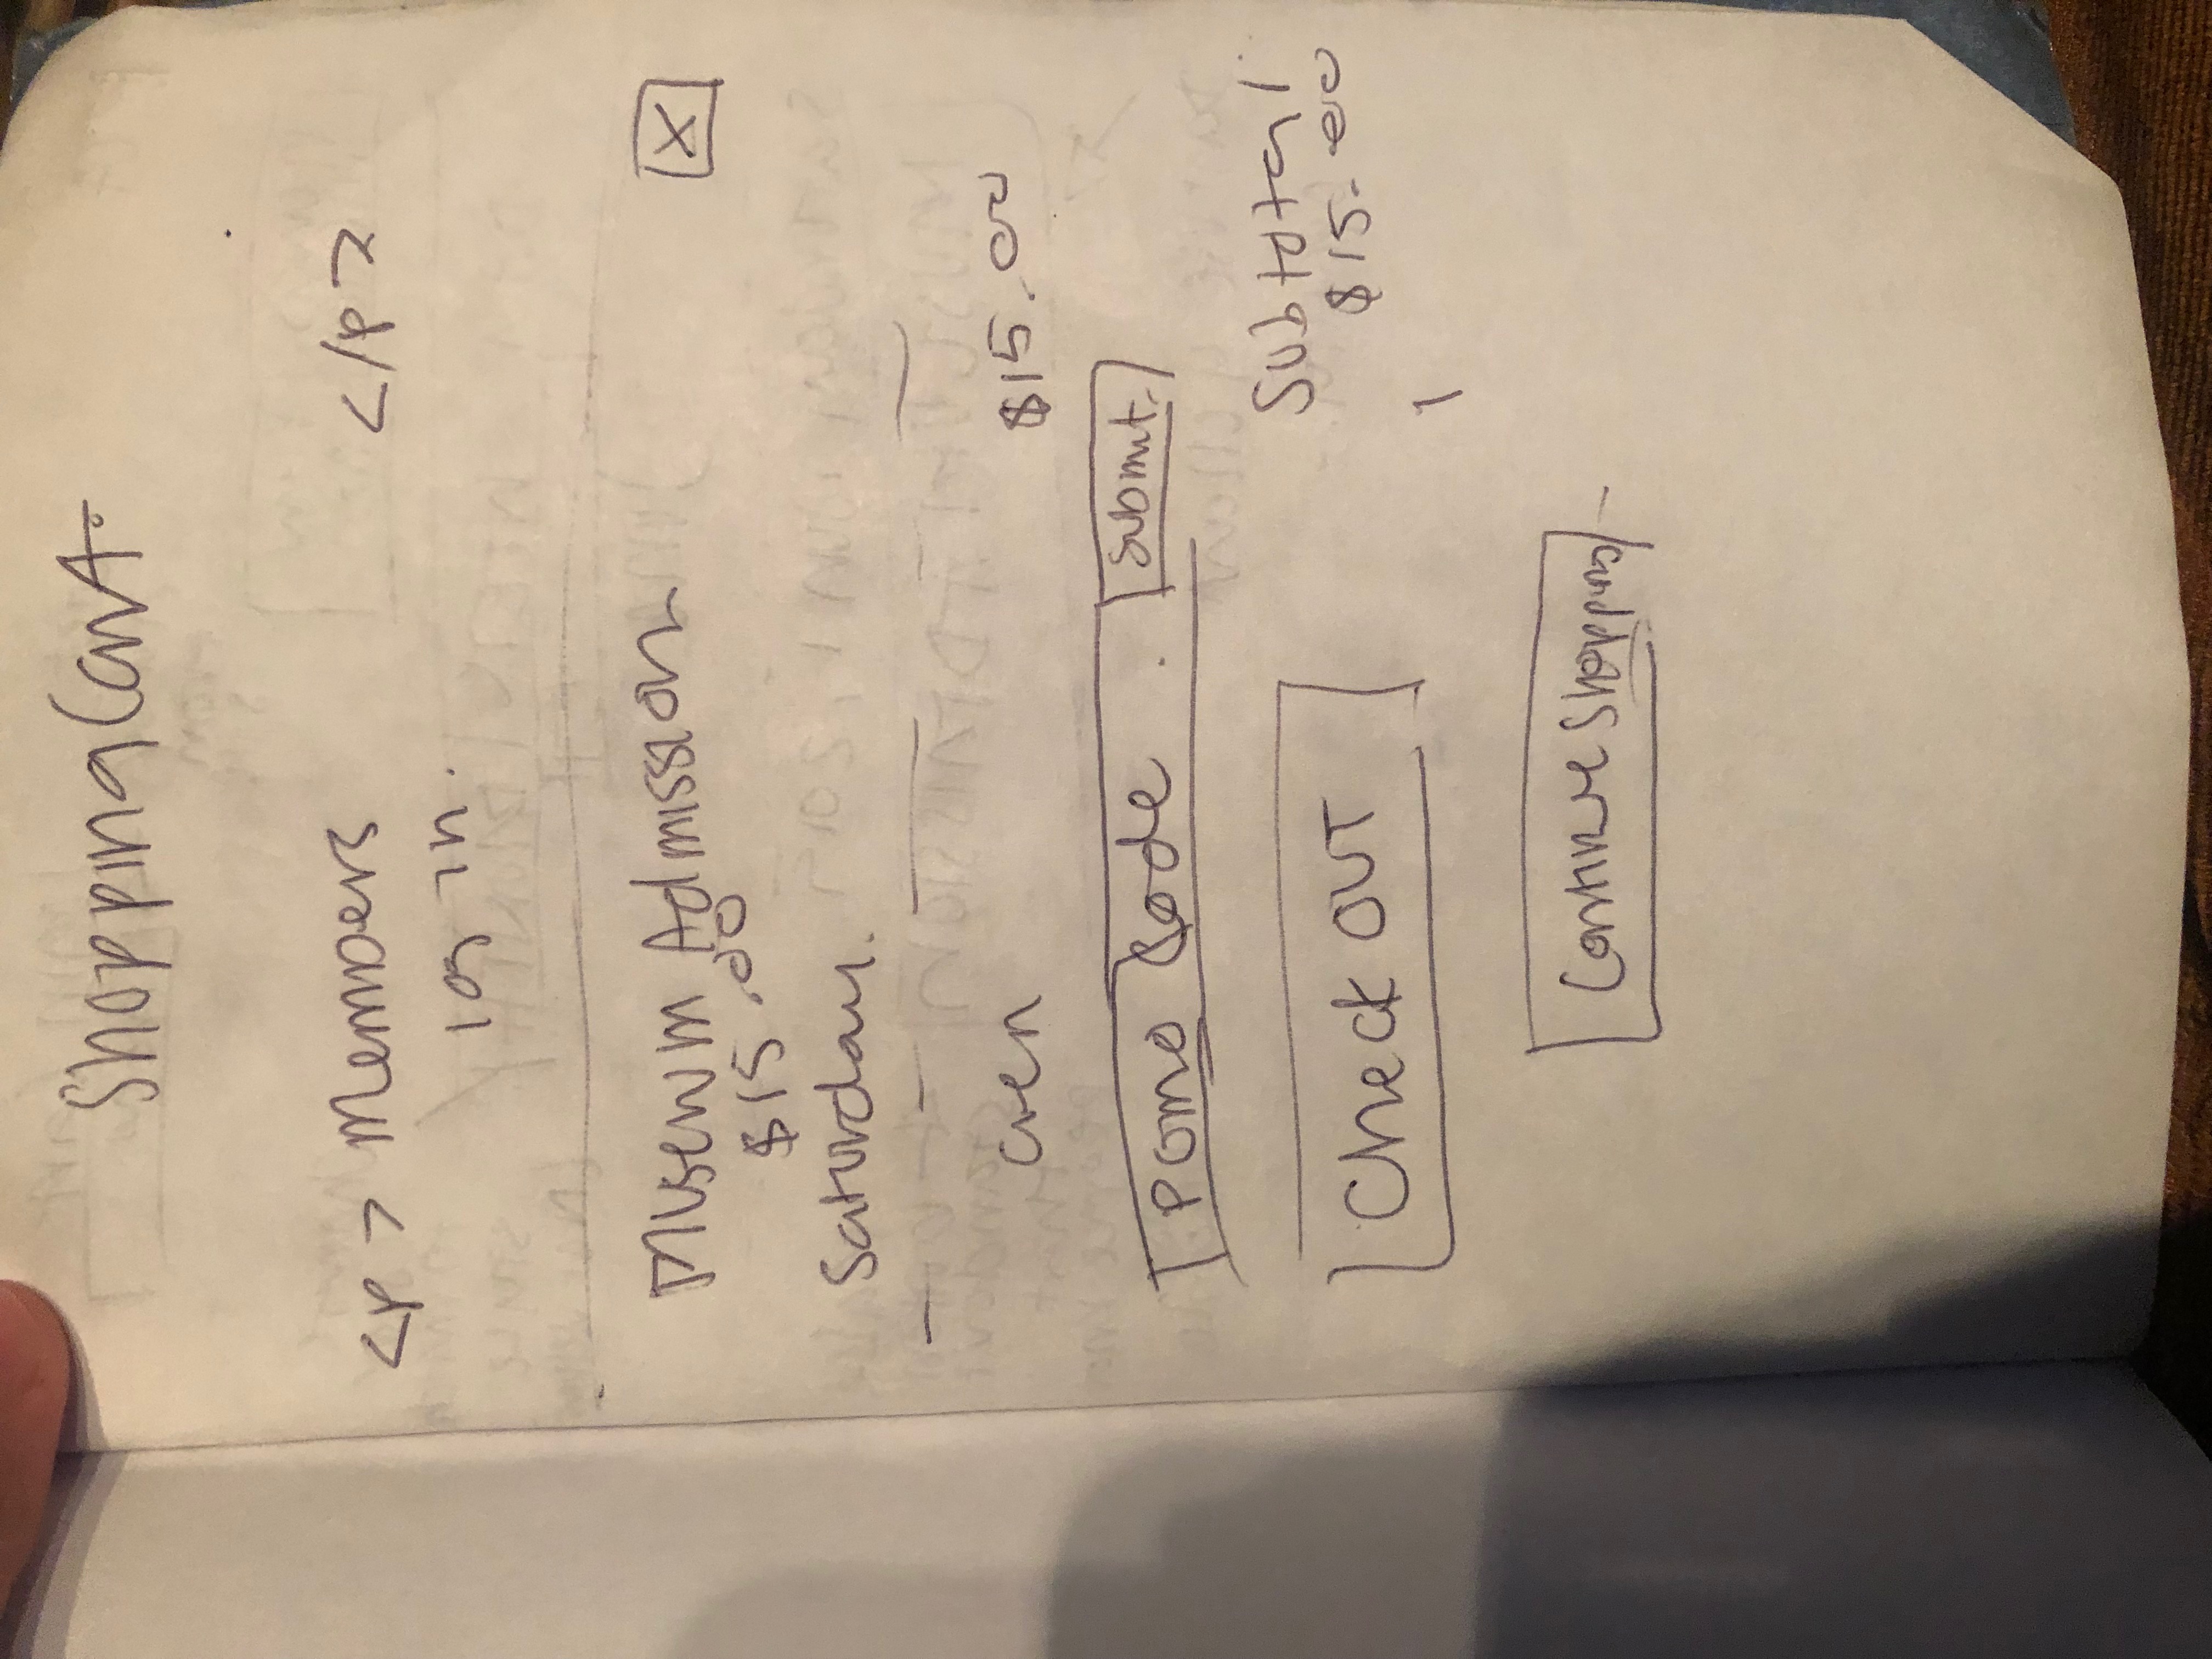 Shopping Cart
<p> Members </p>
log in.
Museum Admission X
$15.00
Saturday.
$15.00
Pomo Code Submit
Subtotal
$15.00
Check OUT
1
Continue Shopping